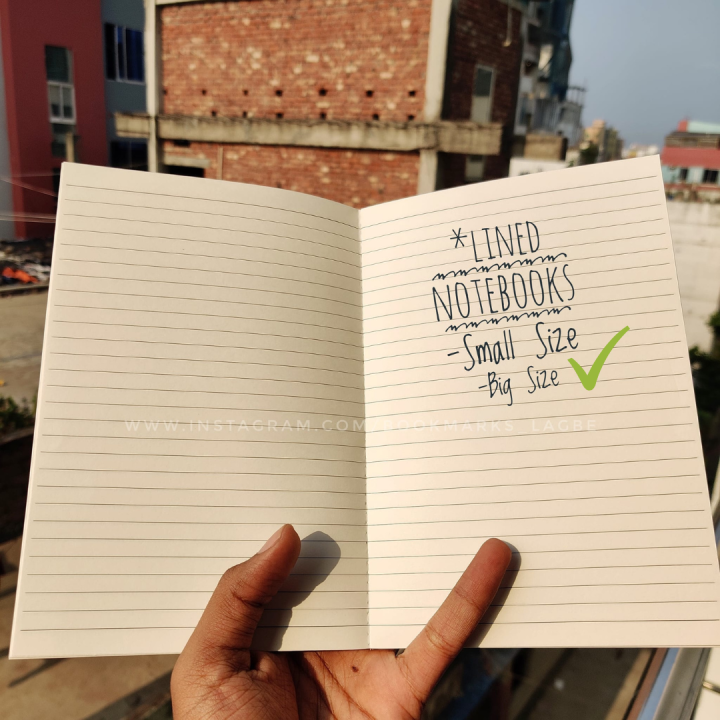 *LINED
NOTEBOOKS
-Small Size
-Big Size
WWW.INSTAGRAM.COM/BOOKMARKS_LAGBE